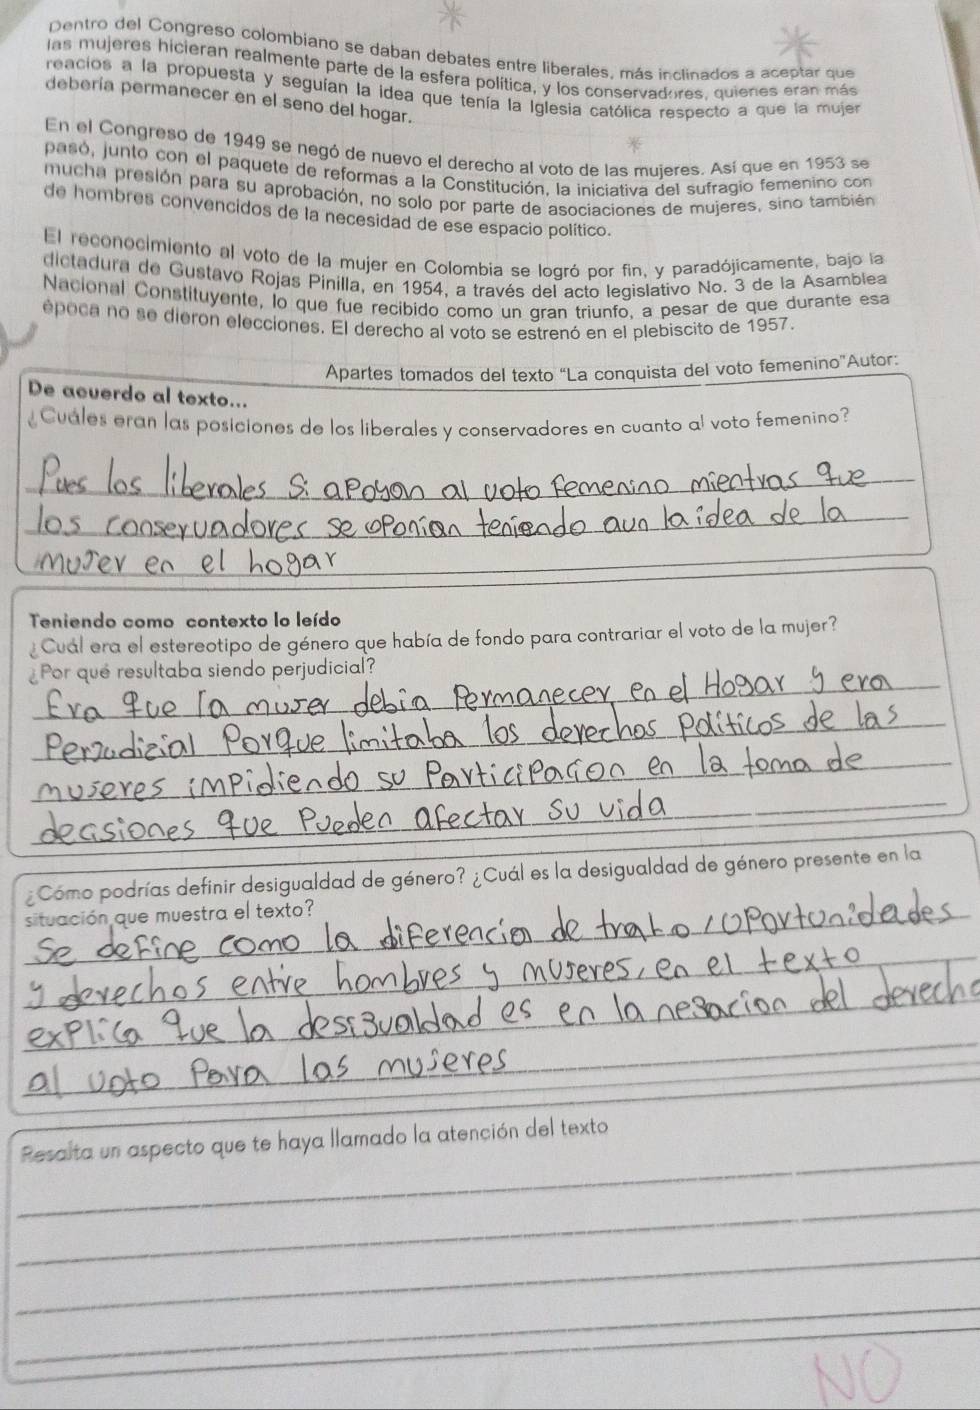 Dentro del Congreso colombiano se daban debates entre liberales, más inclinados a aceptar que
las mujeres hicieran realmente parte de la esfera política, y los conservadores, quienes eran más
reacios a la propuesta y seguían la idea que tenía la Iglesia católica respecto a que la mujer
debería permanecer en el seno del hogar.
En el Congreso de 1949 se negó de nuevo el derecho al voto de las mujeres. Así que en 1953 se
pasó, junto con el paquete de reformas a la Constitución, la iniciativa del sufragio femenino con
mucha presión para su aprobación, no solo por parte de asociaciones de mujeres, sino también
de hombres convencidos de la necesidad de ese espacio político.
El reconocimiento al voto de la mujer en Colombia se logró por fin, y paradójicamente, bajo la
dictadura de Gustavo Rojas Pinilla, en 1954, a través del acto legislativo No. 3 de la Asamblea
Nacional Constituyente, lo que fue recibido como un gran triunfo, a pesar de que durante esa
época no se dieron elecciones. El derecho al voto se estrenó en el plebiscito de 1957.
Apartes tomados del texto "La conquista del voto femenino"Autor:
De acuerdo al texto...
¿Cuáles eran las posiciones de los liberales y conservadores en cuanto al voto femenino?
Pues los liberales Si apoyan al voto femenino mientras que
los conservadores se oponian teniendo aun la idea de la
mujer en el hogar
Teniendo como contexto lo leído
¿Cuál era el estereotipo de género que había de fondo para contrariar el voto de la mujer?
¿Por qué resultaba siendo perjudicial?
Era que la mujer debia Permanecer en el Hogar y era
Perjudizial Porque limitaba los derechos Politicos de las
mujeres impidiendo su Participacion en la toma de
decisiones que Pueden afectar su vida
¿Cómo podrías definir desigualdad de género? ¿Cuál es la desigualdad de género presente en la
situación que muestra el texto?
Se define como la diferencia de trato, oportunidades
y derechos entre hombres y mujeres, en el texto
explica que la desigualdad es en la negacion del derecho
al voto Para las mujeres
Resalta un aspecto que te haya llamado la atención del texto
NO